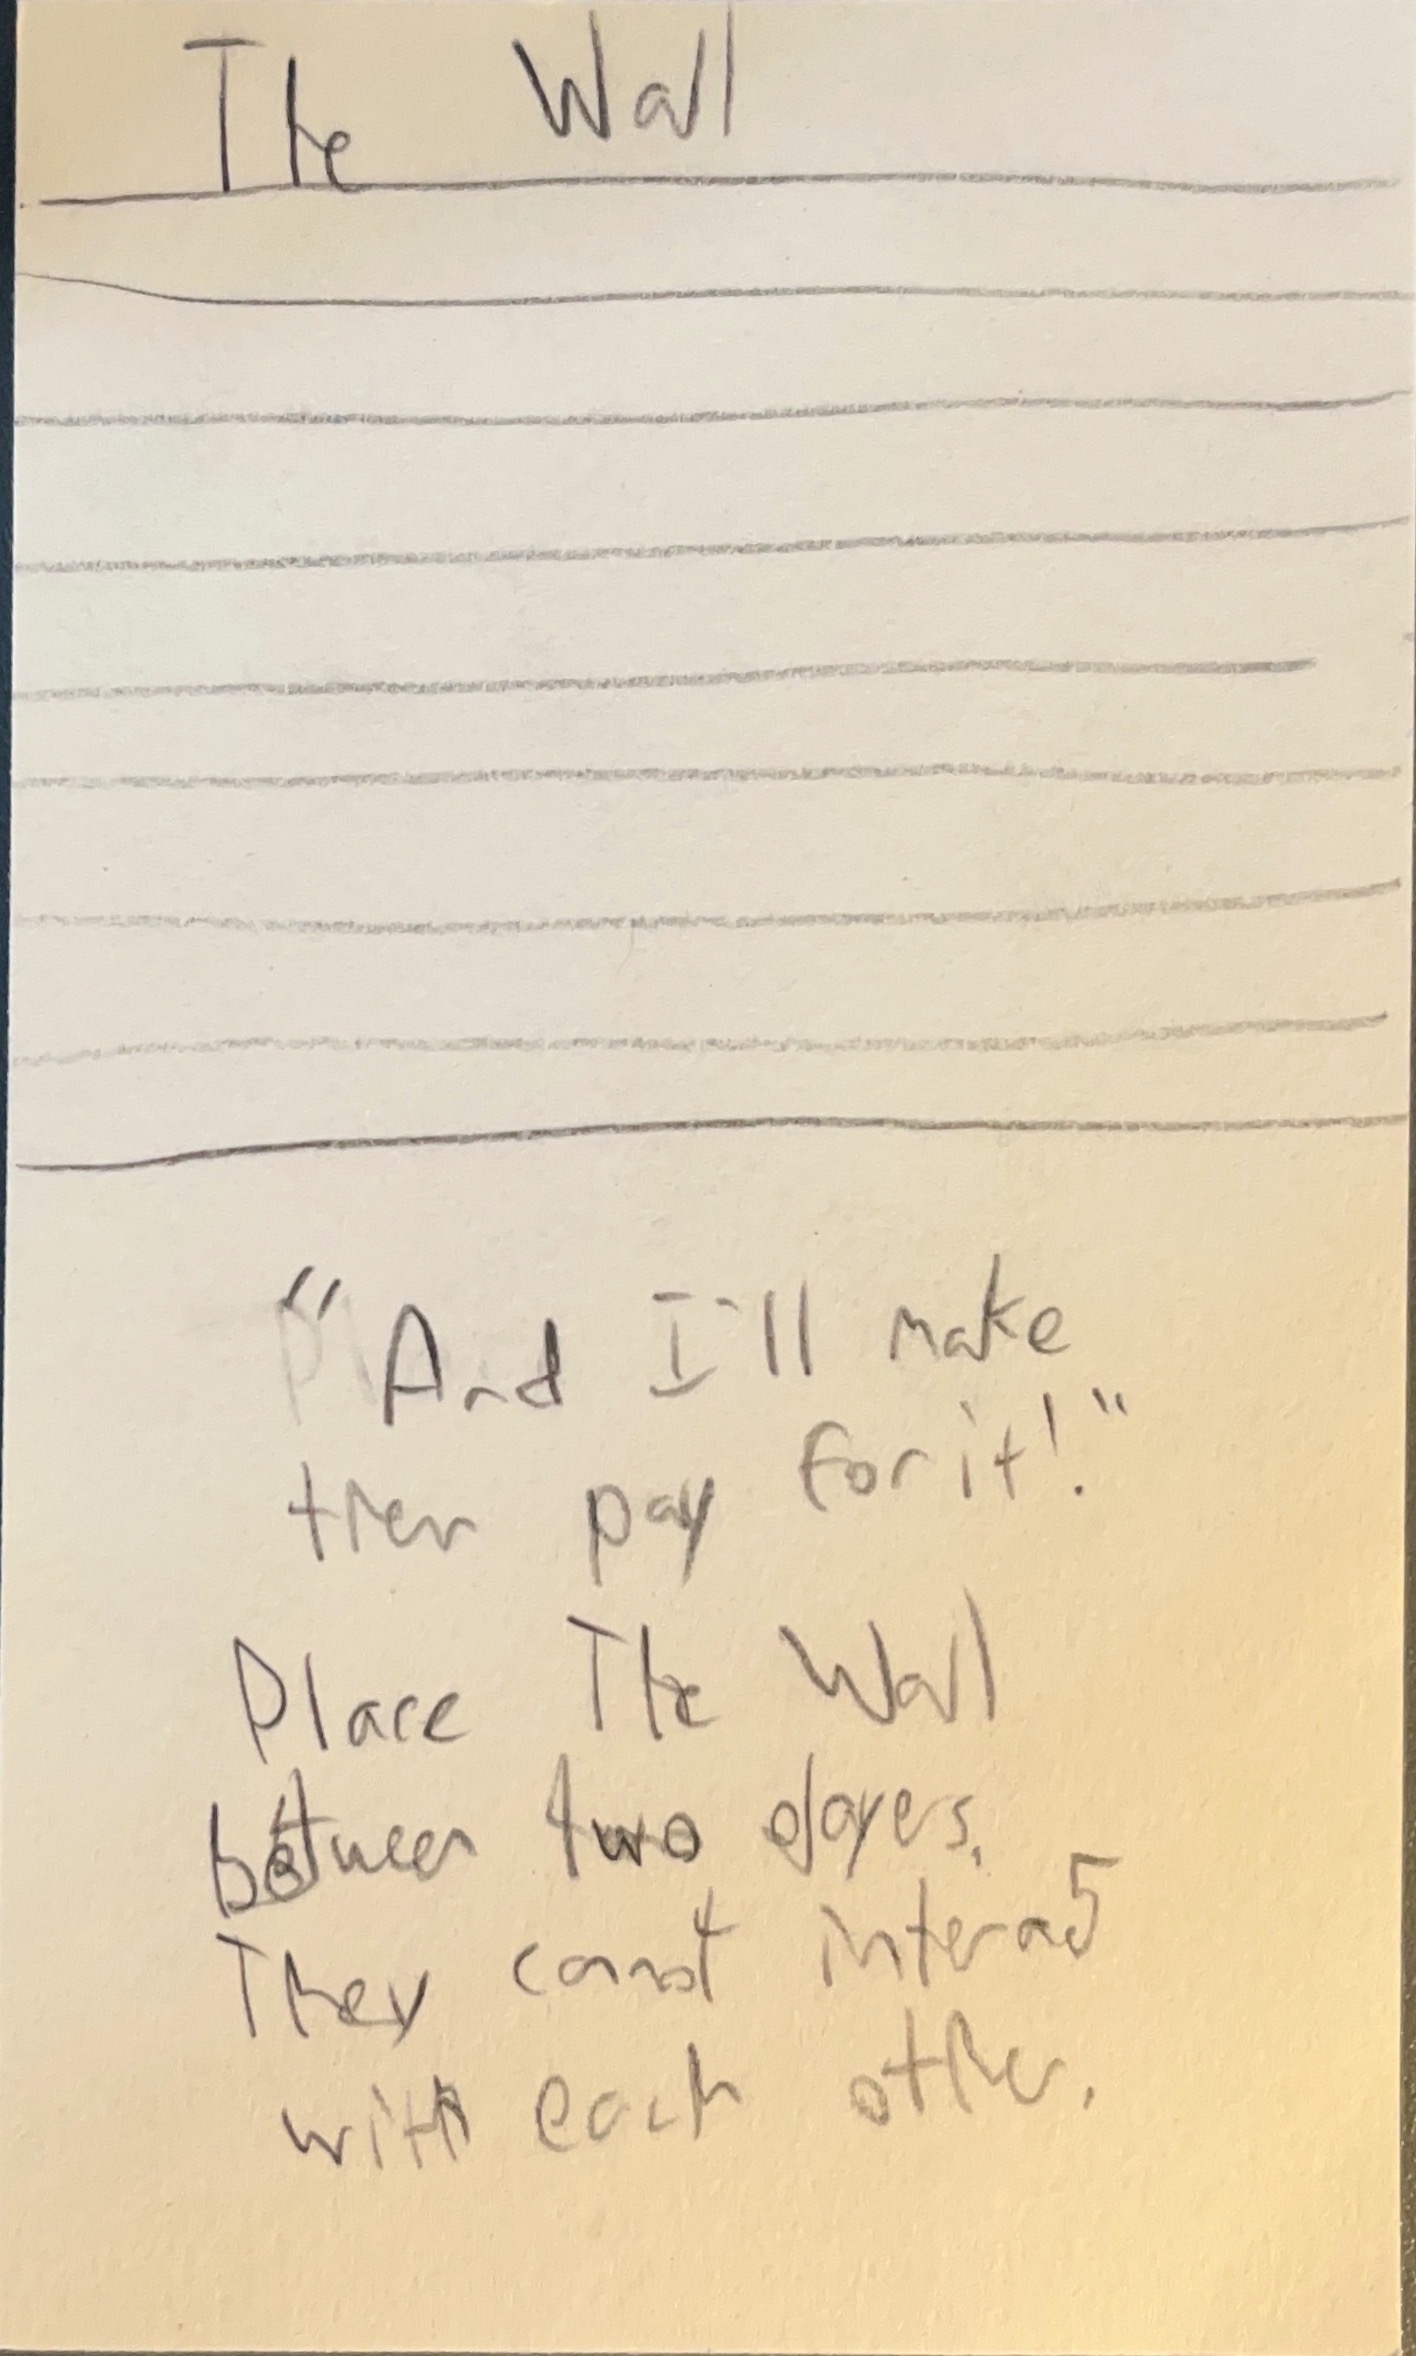 The Wall
"And I'll make
them pay for it!"
Place The Wall
between two players.
They cannot interact
with each other.